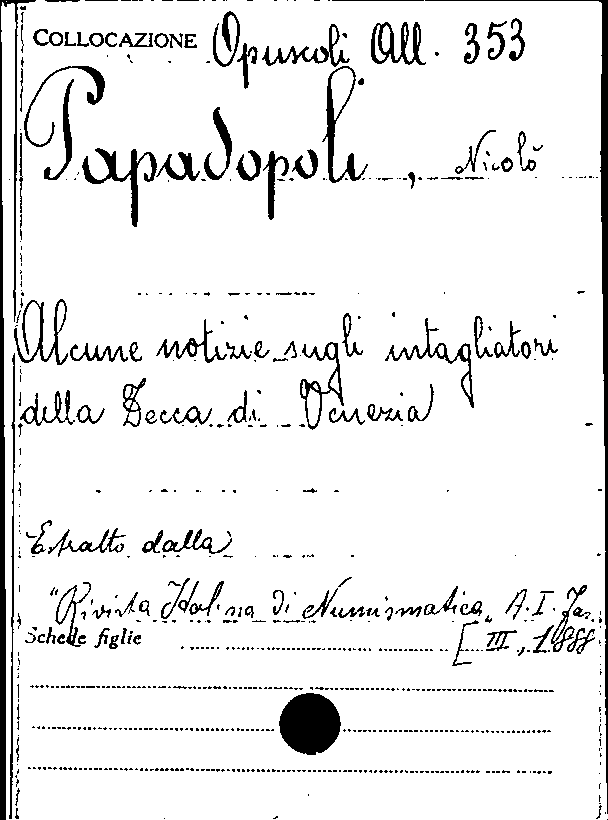 COLLOCAZIONE Opuscoli All. 353
Papadopoli, Nicolò
Alcune notizie sugli intagliatori
della Zecca di Venezia
Estratto dalla
"Rivista Italiana di Numismatica" A. I. Fas.
Schede figlie [III, 1888